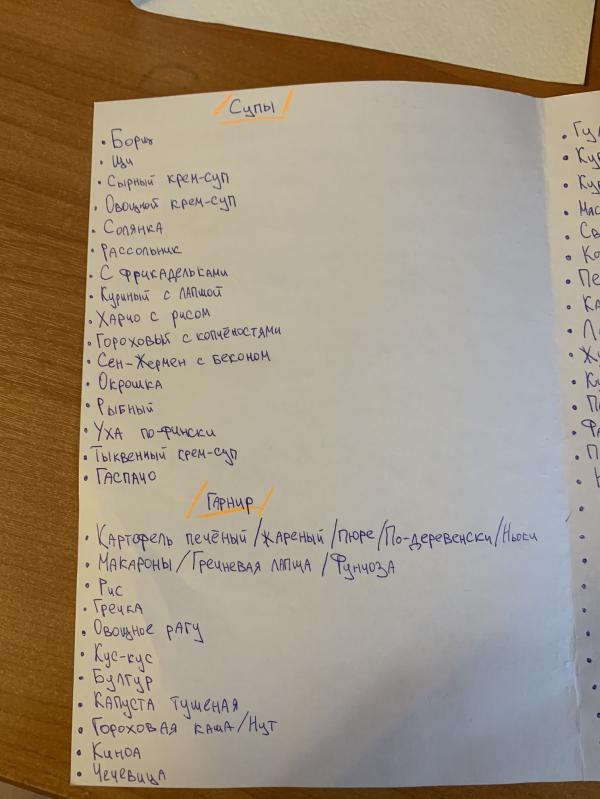 Супы
• Борщ
• Щи
• Сырный крем-суп
• Овощной крем-суп
• Солянка
• Рассольник
• С фрикадельками
• Куриный с лапшой
• Харчо с рисом
• Гороховый с копчёностями
• Сен-Жермен с беконом
• Окрошка
• Рыбный
• Уха по-фински
• Тыквенный крем-суп
• Гаспачо
Гарнир
• Картофель печёный/жареный/пюре/По-деревенски/Ньоки
• Макароны/Гречневая лапша/Фунчоза
• Рис
• Гречка
• Овощное рагу
• Кус-кус
• Булгур
• Капуста тушеная
• Гороховая каша/Нут
• Киноа
• Чечевица